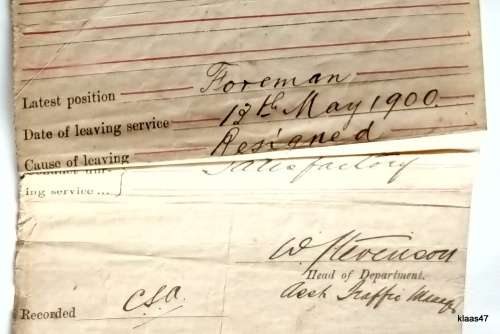 Latest position Foreman
Date of leaving service 13th May 1900.
Cause of leaving Resigned
ing service ... } Satisfactory
W. Stevenson
Head of Department.
Recorded C.S.O. Asst Traffic Manag
klaas47